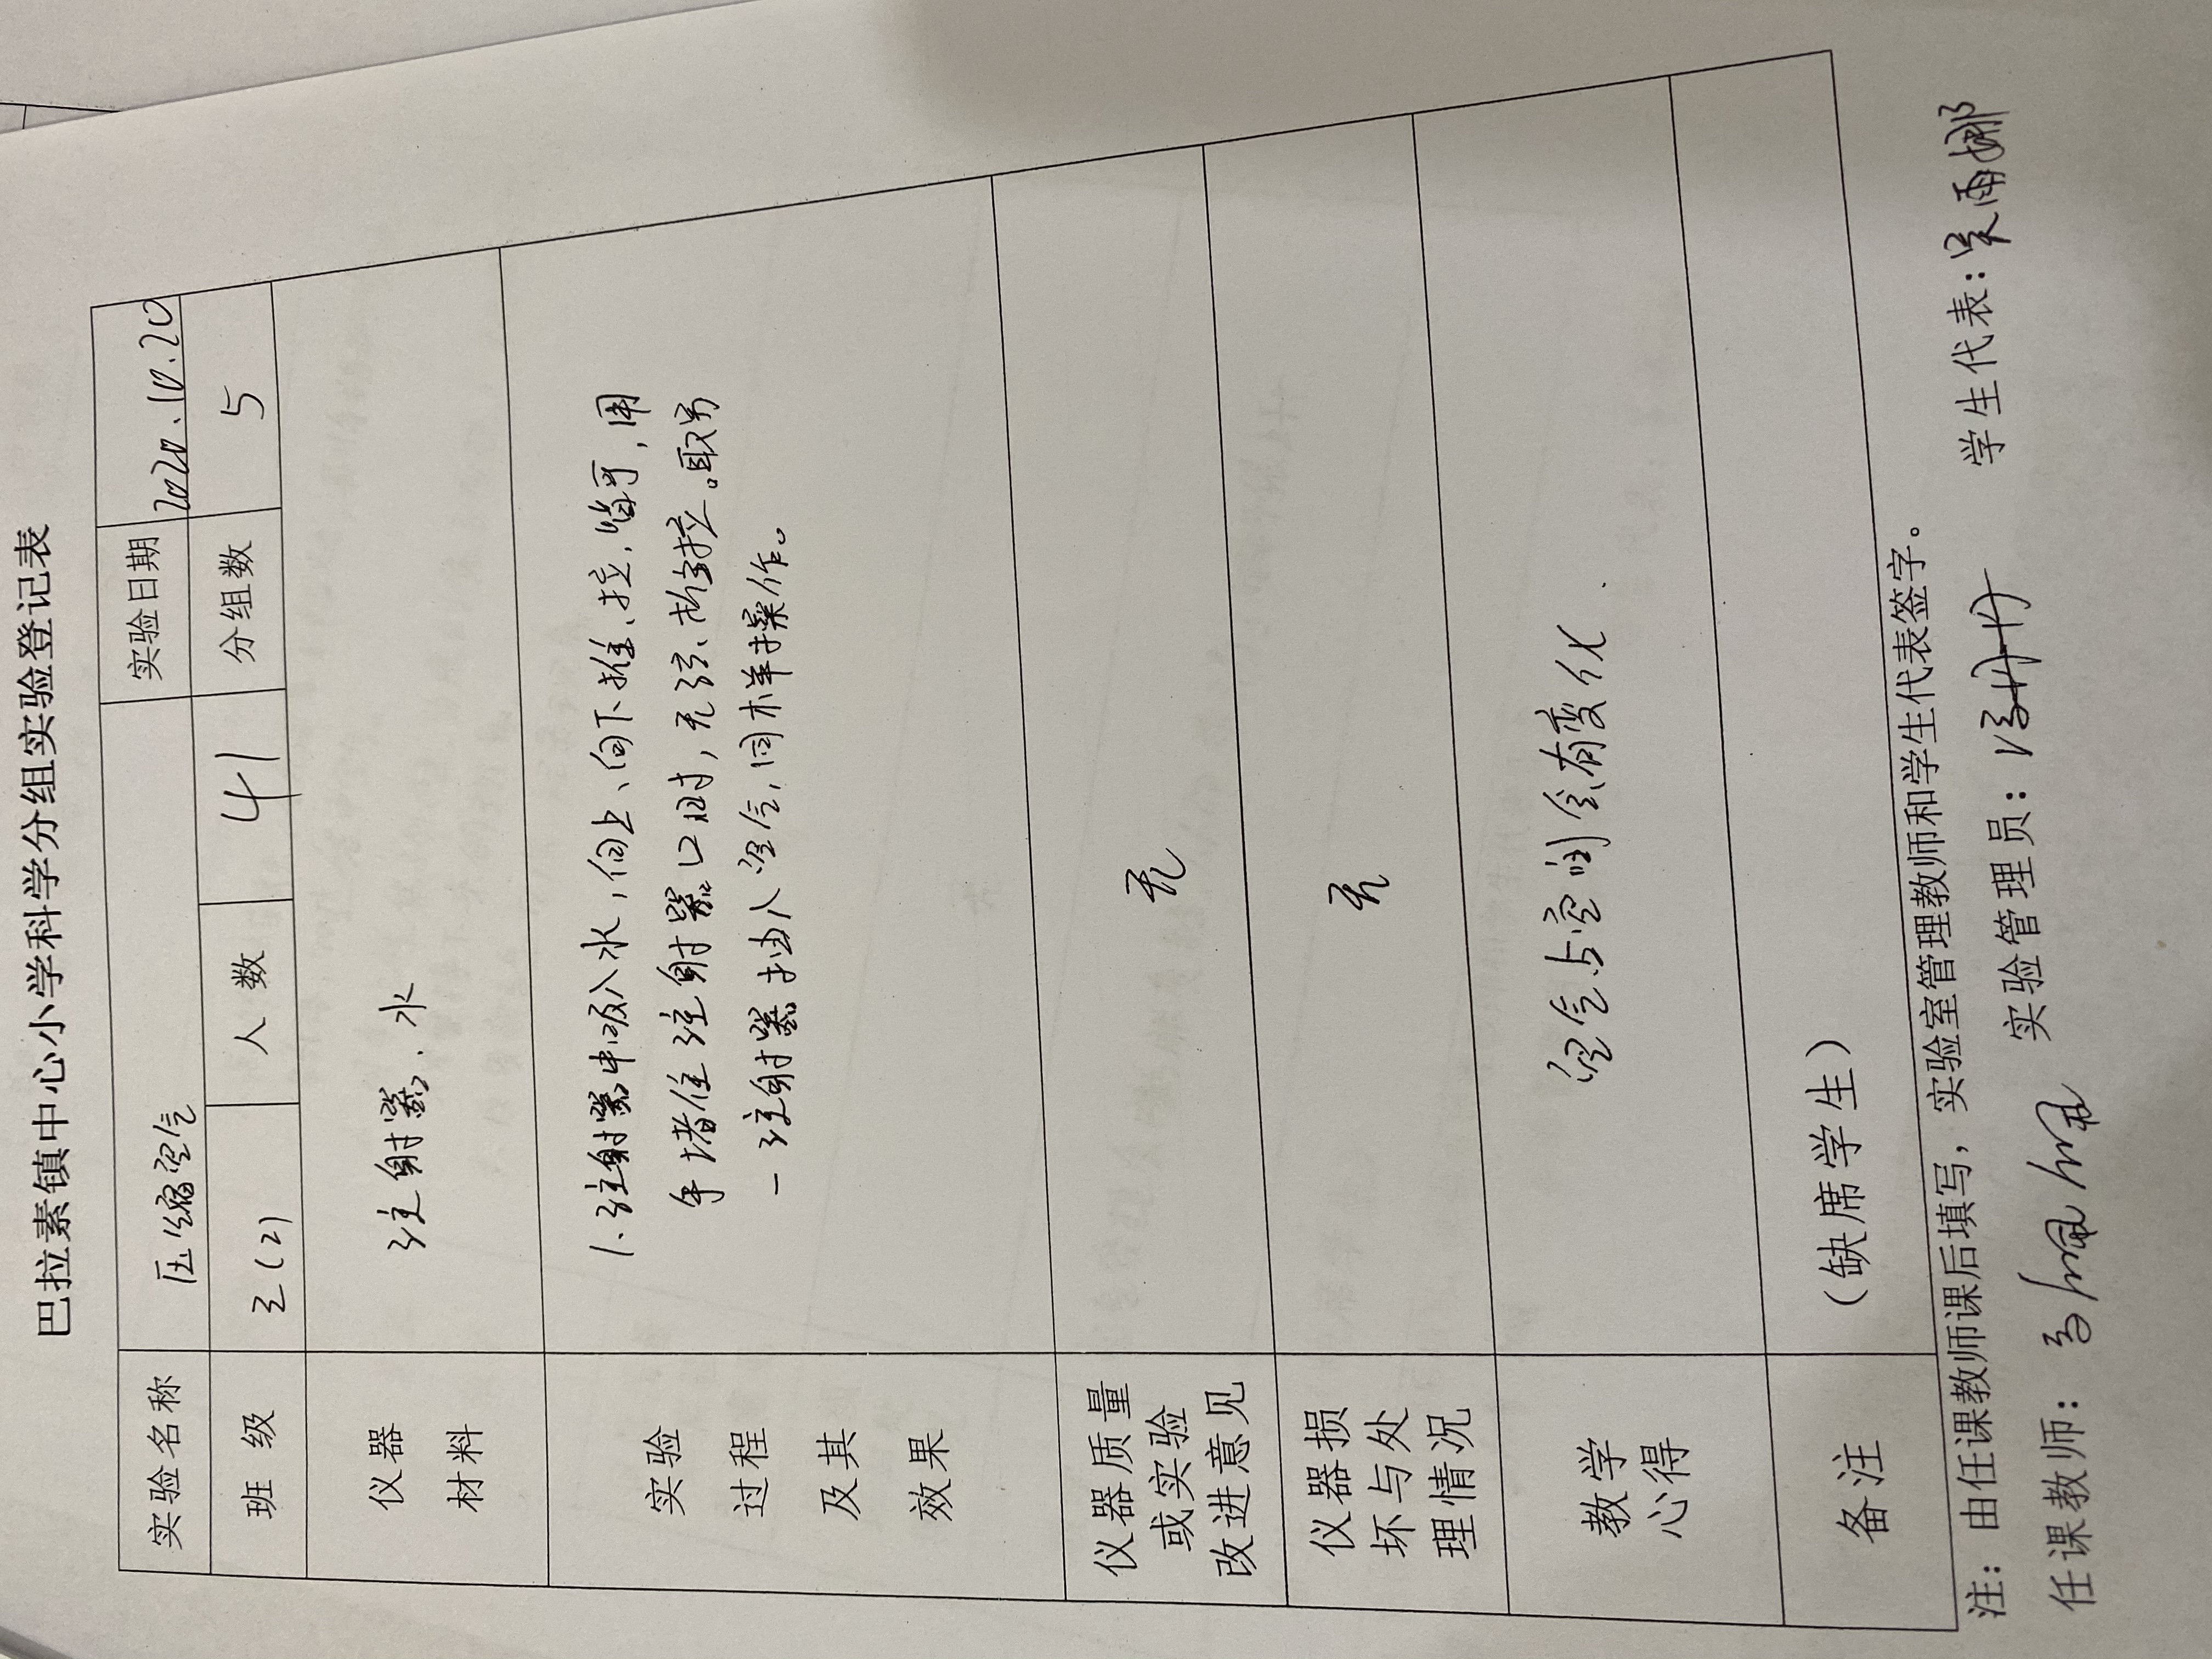 巴拉素镇中心小学科学分组实验登记表
实验名称 压缩空气 实验日期 2020.10.20
班 级 三(2) 人 数 41 分组数 5
仪器
材料
注射器、水
实验
过程
及其
效果
1.注射器中吸入水,向上、向下推、拉,皆可,用
手堵住注射器口时,无法推拉。取另
一注射器抽入空气,同样操作。
仪器质量
或实验
改进意见
无
仪器损
坏与处
理情况
无
教学
心得
空气占空间会有变化
备注
(缺席学生)
注:由任课教师课后填写,实验室管理教师和学生代表签字。
任课教师: 实验管理员: 学生代表:吴雨娜